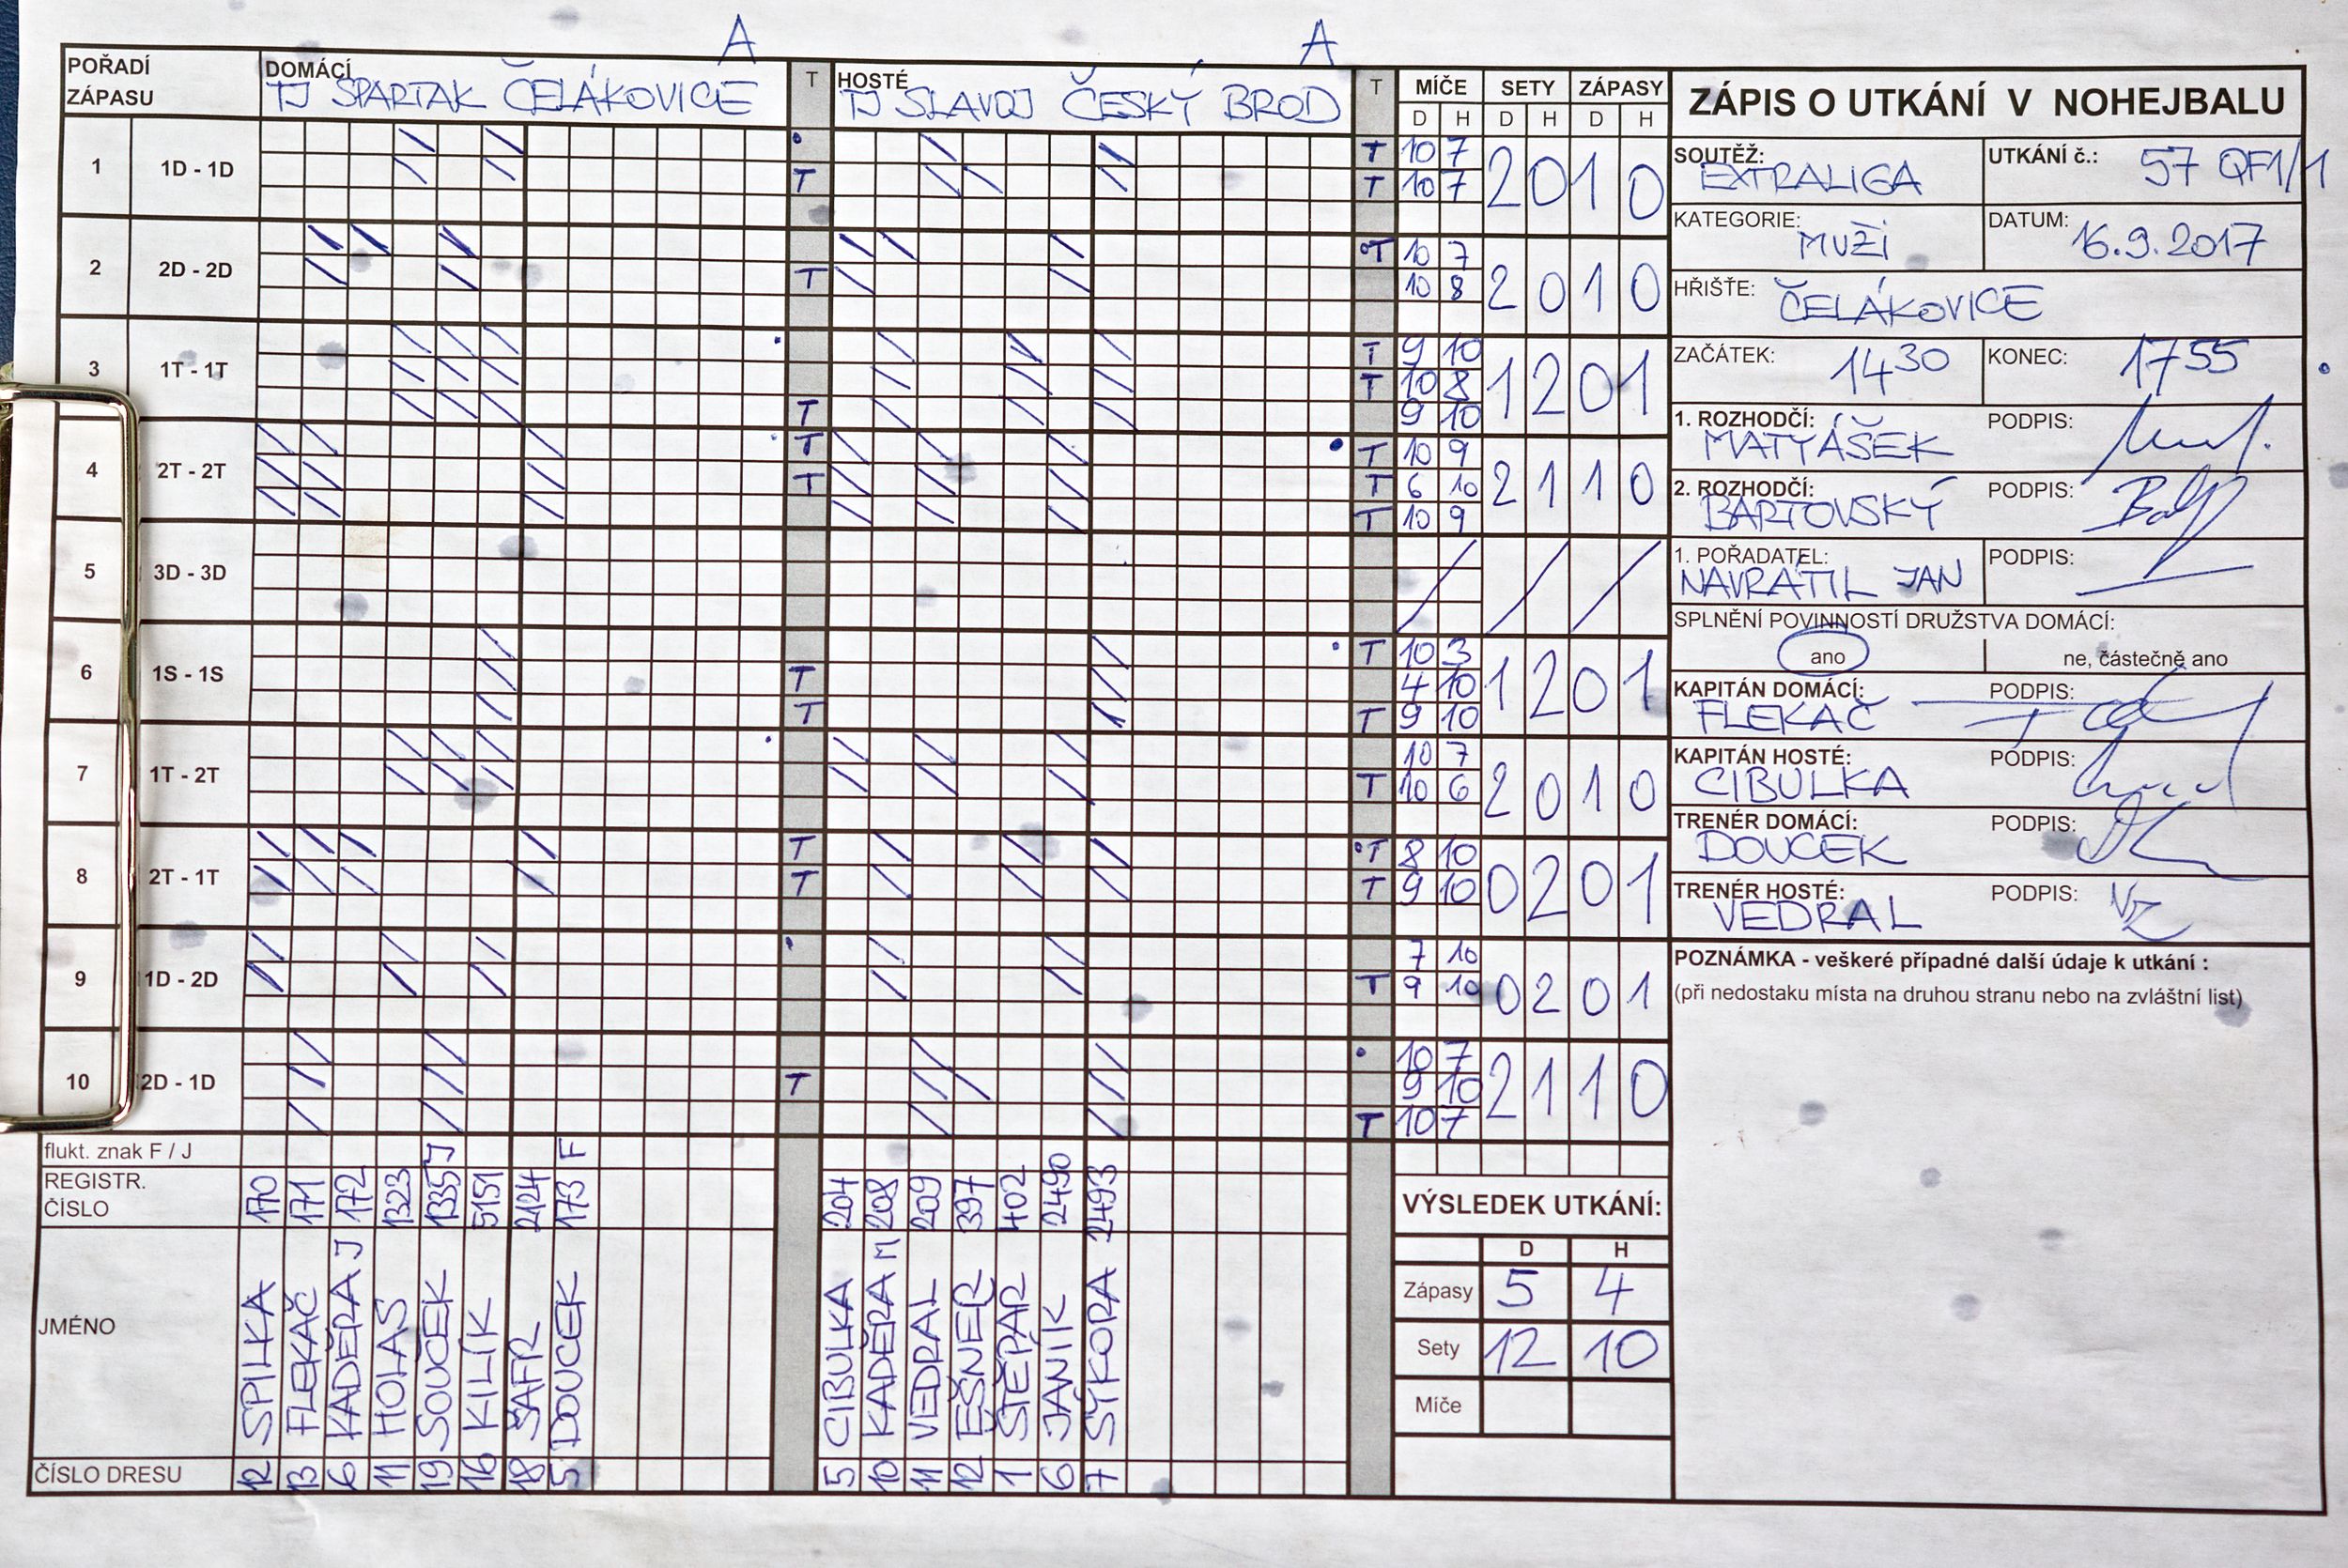 A A
POŘADÍ ZÁPASU
DOMÁCÍ
TJ SPARTAK ČELÁKOVICE
T
HOSTÉ
TJ SLAVOJ ČESKÝ BROD
T
MÍČE SETY ZÁPASY
D H D H D H
1 1D - 1D T T 10 7 2 0 1 0
T 10 7
2 2D - 2D T T 10 7 2 0 1 0
10 8
3 1T - 1T T 9 10 1 2 0 1
T 10 8
T 9 10
4 2T - 2T T T 10 9 2 1 1 0
T T 6 10
T 10 9
5 3D - 3D
6 1S - 1S T 10 3 1 2 0 1
T 4 10
T T 9 10
7 1T - 2T 10 7 2 0 1 0
T 10 6
8 2T - 1T T T 8 10 0 2 0 1
T T 9 10
9 1D - 2D 7 10 0 2 0 1
T 9 10
10 2D - 1D 10 7 2 1 1 0
T 9 10
T 10 7
flukt. znak F / J J F
REGISTR. ČÍSLO
170 171 172 1323 1355 5151 2124 173
204 208 209 397 402 2490 2493
JMÉNO
SPILKA FLEKAČ KADĚRA J HOLAS SOUČEK KILÍK ŠAFR DOUCEK
CIBULKA KADĚRA M VEDRAL EŠNER ŠTĚPÁR JANÍK SÝKORA
ČÍSLO DRESU
12 13 6 11 19 16 18 5
5 10 11 12 1 6 7
VÝSLEDEK UTKÁNÍ:
D H
Zápasy 5 4
Sety 12 10
Míče
ZÁPIS O UTKÁNÍ V NOHEJBALU
SOUTĚŽ: EXTRALIGA
UTKÁNÍ č.: 57 QF1/1
KATEGORIE: MUŽI
DATUM: 16.9.2017
HŘIŠTĚ: ČELÁKOVICE
ZAČÁTEK: 14 30
KONEC: 17 55
1. ROZHODČÍ: MATYÁŠEK
PODPIS:
2. ROZHODČÍ: BARTOVSKÝ
PODPIS:
1. POŘADATEL: NAVRÁTIL JAN
PODPIS:
SPLNĚNÍ POVINNOSTÍ DRUŽSTVA DOMÁCÍ:
ano
ne, částečně ano
KAPITÁN DOMÁCÍ: FLEKAČ
PODPIS:
KAPITÁN HOSTÉ: CIBULKA
PODPIS:
TRENÉR DOMÁCÍ: DOUCEK
PODPIS:
TRENÉR HOSTÉ: VEDRAL
PODPIS:
POZNÁMKA - veškeré případné další údaje k utkání :
(při nedostaku místa na druhou stranu nebo na zvláštní list)